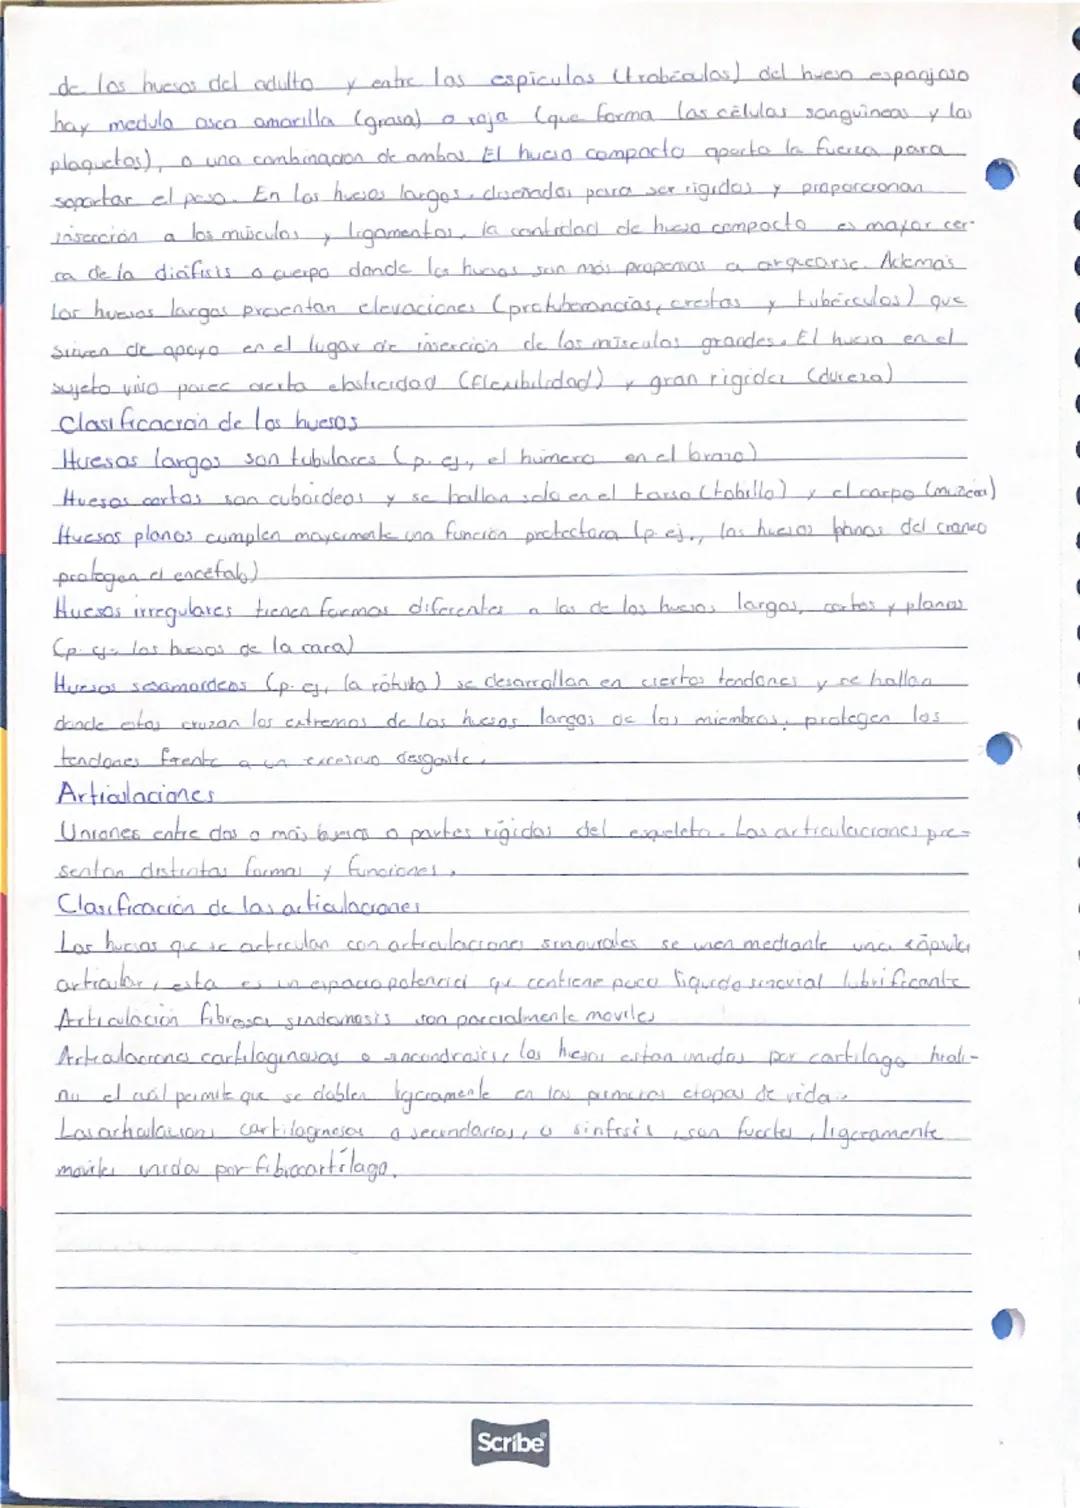 de los huesos del adulto y entre las espiculas (trabéculas) del hueso esponjoso
hay medula osea amarilla (grasa) o roja (que forma las células sanguineas y las
plaquetas), o una combinacion de ambas. El hueso compacto aporta la fuerza para
soportar el peso. En los huesos largos, diseñados para ser rigidos y proporcionan
inserción a los músculos y ligamentos, la cantidad de hueso compacto es mayor cer-
ca de la diáfisis o cuerpo donde los huesos son más propensos a arquearse. Además
los huesos largos presentan elevaciones (protuberancias, crestas y tubérculos) que
sirven de apoyo en el lugar de inserción de los músculos grandes. El hueso en el
sujeto vivo posee cierta elasticidad (flexibilidad) y gran rigidez (dureza)
Clasificación de los huesos
Huesos largos son tubulares (p. ej., el húmero en el brazo)
Huesos cortos son cuboideos y se hallan solo en el tarso (tobillo) y el carpo (muñeca)
Huesos planos cumplen mayormente una función protectora (p ej., los huesos planos del craneo
protegen el encefalo)
Huesos irregulares tienen formas diferentes a las de los huesos largos, cortos y planos
(p. ej. los huesos de la cara)
Huesos sesamoideos (p. ej, la rótula) se desarrollan en ciertos tendones y se hallan
donde estos cruzan los extremos de los huesos largos de los miembros, protegen los
tendones frente a un excesivo desgaste.
Articulaciones
Uniones entre dos o más huesos o partes rígidas del esqueleto. Las articulaciones pre-
sentan distintas formas y funciones.
Clasificación de las articulaciones
Los huesos que se articulan con articulaciones sinoviales se unen mediante una cápsula
articular, esta es un espacio potencial que contiene poco líquido sinovial lubrificante
Articulación fibrosa sindemosis son parcialmente moviles
Articulaciones cartilaginosas o sincondrosis, los huesos estan unidos por cartilago hiali-
no el cuál permite que se doblen ligeramente en las primeras etapas de vida.
Las articulaciones cartilaginosas o secundarias, o sinfisis, son fuertes, ligeramente
moviles unida por fibrocartílago.
Scribe